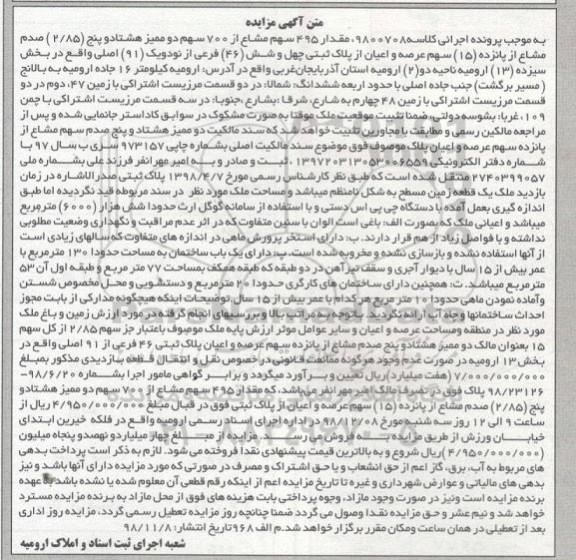 متن آگهی مزایده
به موجب پرونده اجرائی کلاسه ۹۸۰۰۷۰۸، مقدار ۴۹۵ سهم مشاع از ۷۰۰ سهم دو ممیز هشتاد و پنج (۲/۸۵) صدم
مشاع از پانزده (۱۵) سهم عرصه و اعیان از پلاک ثبتی چهل و شش (۴۶) فرعی از نود و یک (۹۱) اصلی واقع در بخش
سیزده (۱۳) ارومیه ناحیه دو (۲) ارومیه استان آذربایجان غربی واقع در آدرس: ارومیه کیلومتر ۱۶ جاده ارومیه به بالانج
(مسیر برگشت) جنب جاده اصلی با حدود اربعه ششدانگ: شمالا: در دو قسمت مرزیست اشتراکی با زمین ۴۷، دوم در دو
قسمت مرزیست اشتراکی با زمین ۴۸ چهارم به شارع، شرقا: بشارع، جنوبا: در سه قسمت مرزیست اشتراکی با چمن
۱۰۹، غربا: بشوسه دولتی، ضمنا تثبیت موقعیت ملک موقتا به صورت مشکوک در سوابق کاداستر جانمایی شده و پس از
مراجعه مالکین رسمی و مطابقت با مجاورین تثبیت خواهد شد که سند مالکیت دو ممیز هشتاد و پنج صدم سهم مشاع از
پانزده سهم عرصه و اعیان پلاک موصوف فوق موضوع سند مالکیت اصلی بشماره چاپی ۹۷۳۱۵۷ سری ب سال ۹۷ با
شماره دفتر الکترونیکی ۱۳۹۷۲۰۳۱۳۰۵۳۰۰۶۵۵۹، ثبت و صادر و به امیر مهر انفر فرزند علی بشماره ملی
۲۷۴۰۳۹۹۰۵۷ منتقل شده است که طبق نظر کارشناس رسمی مورخ ۱۳۹۸/۴/۷ پلاک ثبتی صدرالاشاره در زمان
بازدید ملک یک قطعه زمین مسطح به شکل نامنظم میباشد و مساحت ملک مورد نظر در سند مربوطه قید نگردیده اما طبق
اندازه گیری بعمل آمده با دستگاه جی پی اس دستی و با استفاده از سامانه گوگل ارث حدودا شش هزار (۶۰۰۰) مترمربع
میباشد و اعیانی ملک که بصورت: الف: باغی است الوان با سنین متفاوت که در اثر عدم مراقبت و نگهداری وضعیت مطلوبی
نداشته و با فواصل زیاد از هم قرار دارند. ب: دارای استخر پرورش ماهی در اندازه های متفاوت که سالهای زیادی است
از آنها استفاده نشده و بازسازی نشده و مخروبه شده است. پ: دارای یک باب ساختمان به مساحت حدودا ۱۳۰ مترمربع با
عمر بیش از ۱۵ سال با دیوار آجری و سقف تیرآهن در دو طبقه که طبقه همکف بمساحت ۷۷ متر مربع و طبقه اول آن ۵۳
مترمربع میباشد. ت: همچنین دارای ساختمان های کارگری حدودا ۲۰ مترمربع و دستشویی و محل مخصوص شستن
و آماده نمودن ماهی حدودا ۱۰ متر مربع هر کدام با عمر بیش از ۱۵ سال. توضیحات اینکه هیچگونه مدارکی از بابت مجوز
احداث ساختمانها و چاه آب ارائه نگردید. با توجه به مراتب بالا و بررسیهای انجام گرفته در مورد ارزش زمین و باغ ملک
مورد نظر در منطقه و مساحت عرصه و اعیان و سایر عوامل موثر ارزش پایه ملک موصوف باعتبار جز سهم ۲/۸۵ از کل سهم
۱۵ بعنوان مالک دو ممیز هشتاد و پنج صدم سهم مشاع از پانزده سهم عرصه و اعیان پلاک ثبتی ۴۶ فرعی از ۹۱ اصلی واقع در
بخش ۱۳ ارومیه در صورت عدم وجود هرگونه ممانعت قانونی در خصوص نقل و انتقال قطعه بازدیدی مذکور بمبلغ
۷/۰۰۰/۰۰۰/۰۰۰ (هفت میلیارد) ریال تعیین و برآورد میگردد و برابر گواهی مامور اجرا بشماره ۹۸/۶/۲۰-
۹۸/۲۳۱۲۶ پلاک فوق در تصرف مالک امیر مهر انفر می‌باشد، که مقدار ۴۹۵ سهم مشاع از ۷۰۰ سهم دو ممیز هشتاد و
پنج (۲/۸۵) صدم مشاع از پانزده (۱۵) سهم عرصه و اعیان از پلاک ثبتی فوق در قبال مبلغ ۴/۹۵۰/۰۰۰/۰۰۰ ریال از
ساعت ۹ الی ۱۲ روز سه شنبه مورخ ۹۸/۱۲/۰۸ در اداره اجرای اسناد رسمی ارومیه واقع در فلکه خیرین ابتدای
خیابان ورزش از طریق مزایده به فروش می رسد. مزایده از مبلغ چهار میلیارد و نهصد و پنجاه میلیون
(۴/۹۵۰/۰۰۰/۰۰۰) ریال شروع و به بالاترین قیمت پیشنهادی نقدا فروخته می شود. لازم به ذکر است پرداخت بدهی
های مربوط به آب، برق، گاز اعم از حق انشعاب و یا حق اشتراک و مصرف در صورتی که مورد مزایده دارای آنها باشد و نیز
بدهی های مالیاتی و عوارض شهرداری و غیره تا تاریخ مزایده اعم از اینکه رقم قطعی آن معلوم شده یا نشده باشد به عهده
برنده مزایده است و نیز در صورت وجود مازاد، وجوه پرداختی بابت هزینه های فوق از محل مازاد به برنده مزایده مسترد
خواهد شد و نیم عشر و حق مزایده نقدا وصول می گردد ضمنا چنانچه روز مزایده تعطیل رسمی گردد، مزایده روز اداری
بعد از تعطیلی در همان ساعت و مکان مقرر برگزار خواهد شد. م الف ۹۶۸ تاریخ انتشار: ۹۸/۱۱/۸
شعبه اجرای ثبت اسناد و املاک ارومیه